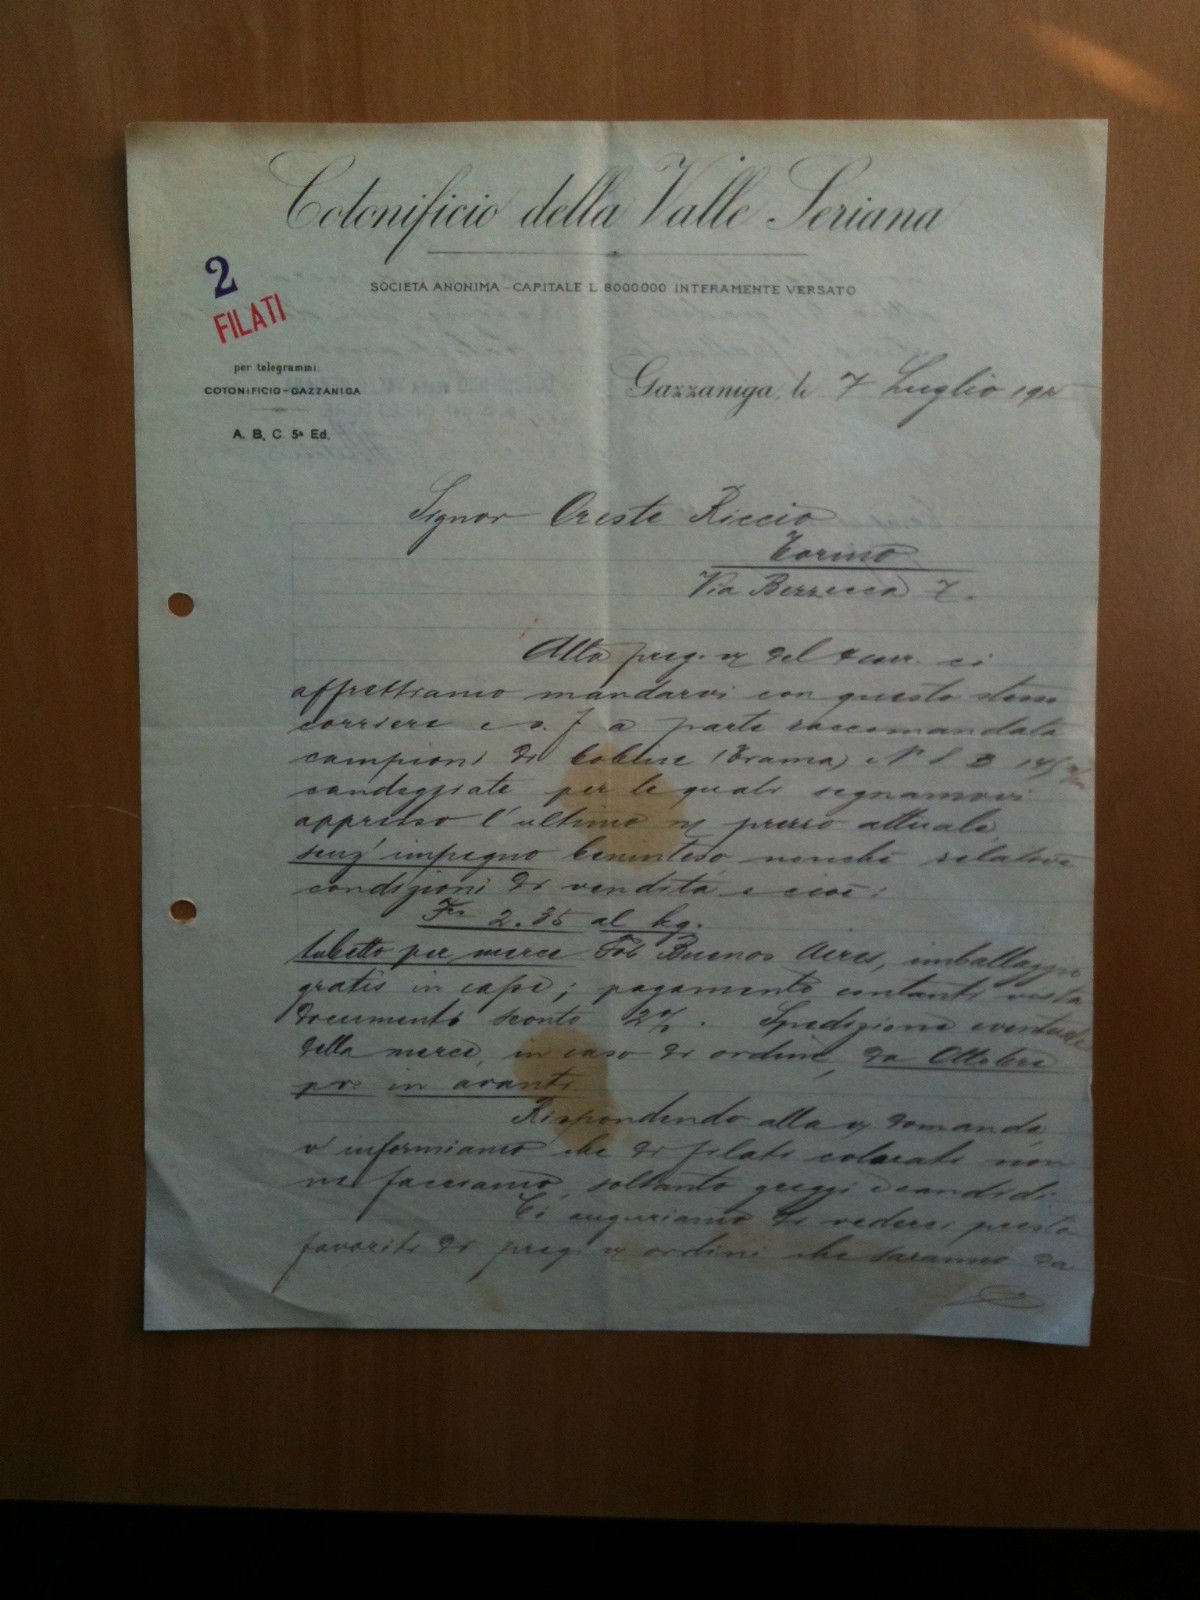 Cotonificio della Valle Seriana
SOCIETÀ ANONIMA - CAPITALE L. 8000000 INTERAMENTE VERSATO
2
FILATI
per telegrammi:
COTONIFICIO-GAZZANIGA
A. B. C. 5ª Ed.
Gazzaniga, li 7 Luglio
Signor Oreste Riccio
Torino
Via Bezzecca 7.
Alla preg. del corr. ci
affrettiamo mandarvi con questo stesso
corriere a parte raccomandata
campioni di bobine (Trama) N
candeggiate per le quali segnamovi
appresso l'ultimo prezzo attuale
senz' impegno beninteso nonchè relative
condizioni di vendita e cioè:
Frs 2.35 al kg.
tubetto per merce Fob Buenos Aires, imballaggio
gratis in casse; pagamento contanti vista
documenti sconto 2%. Spedizione eventuale
della merce, in caso di ordine, da Ottobre
pr. in avanti.
Rispondendo alla domanda
v'informiamo che di filati colorati non
ne facciamo, soltanto greggi e candidi.
Ci auguriamo di vederci presto
favoriti di preg. ordini che saranno da